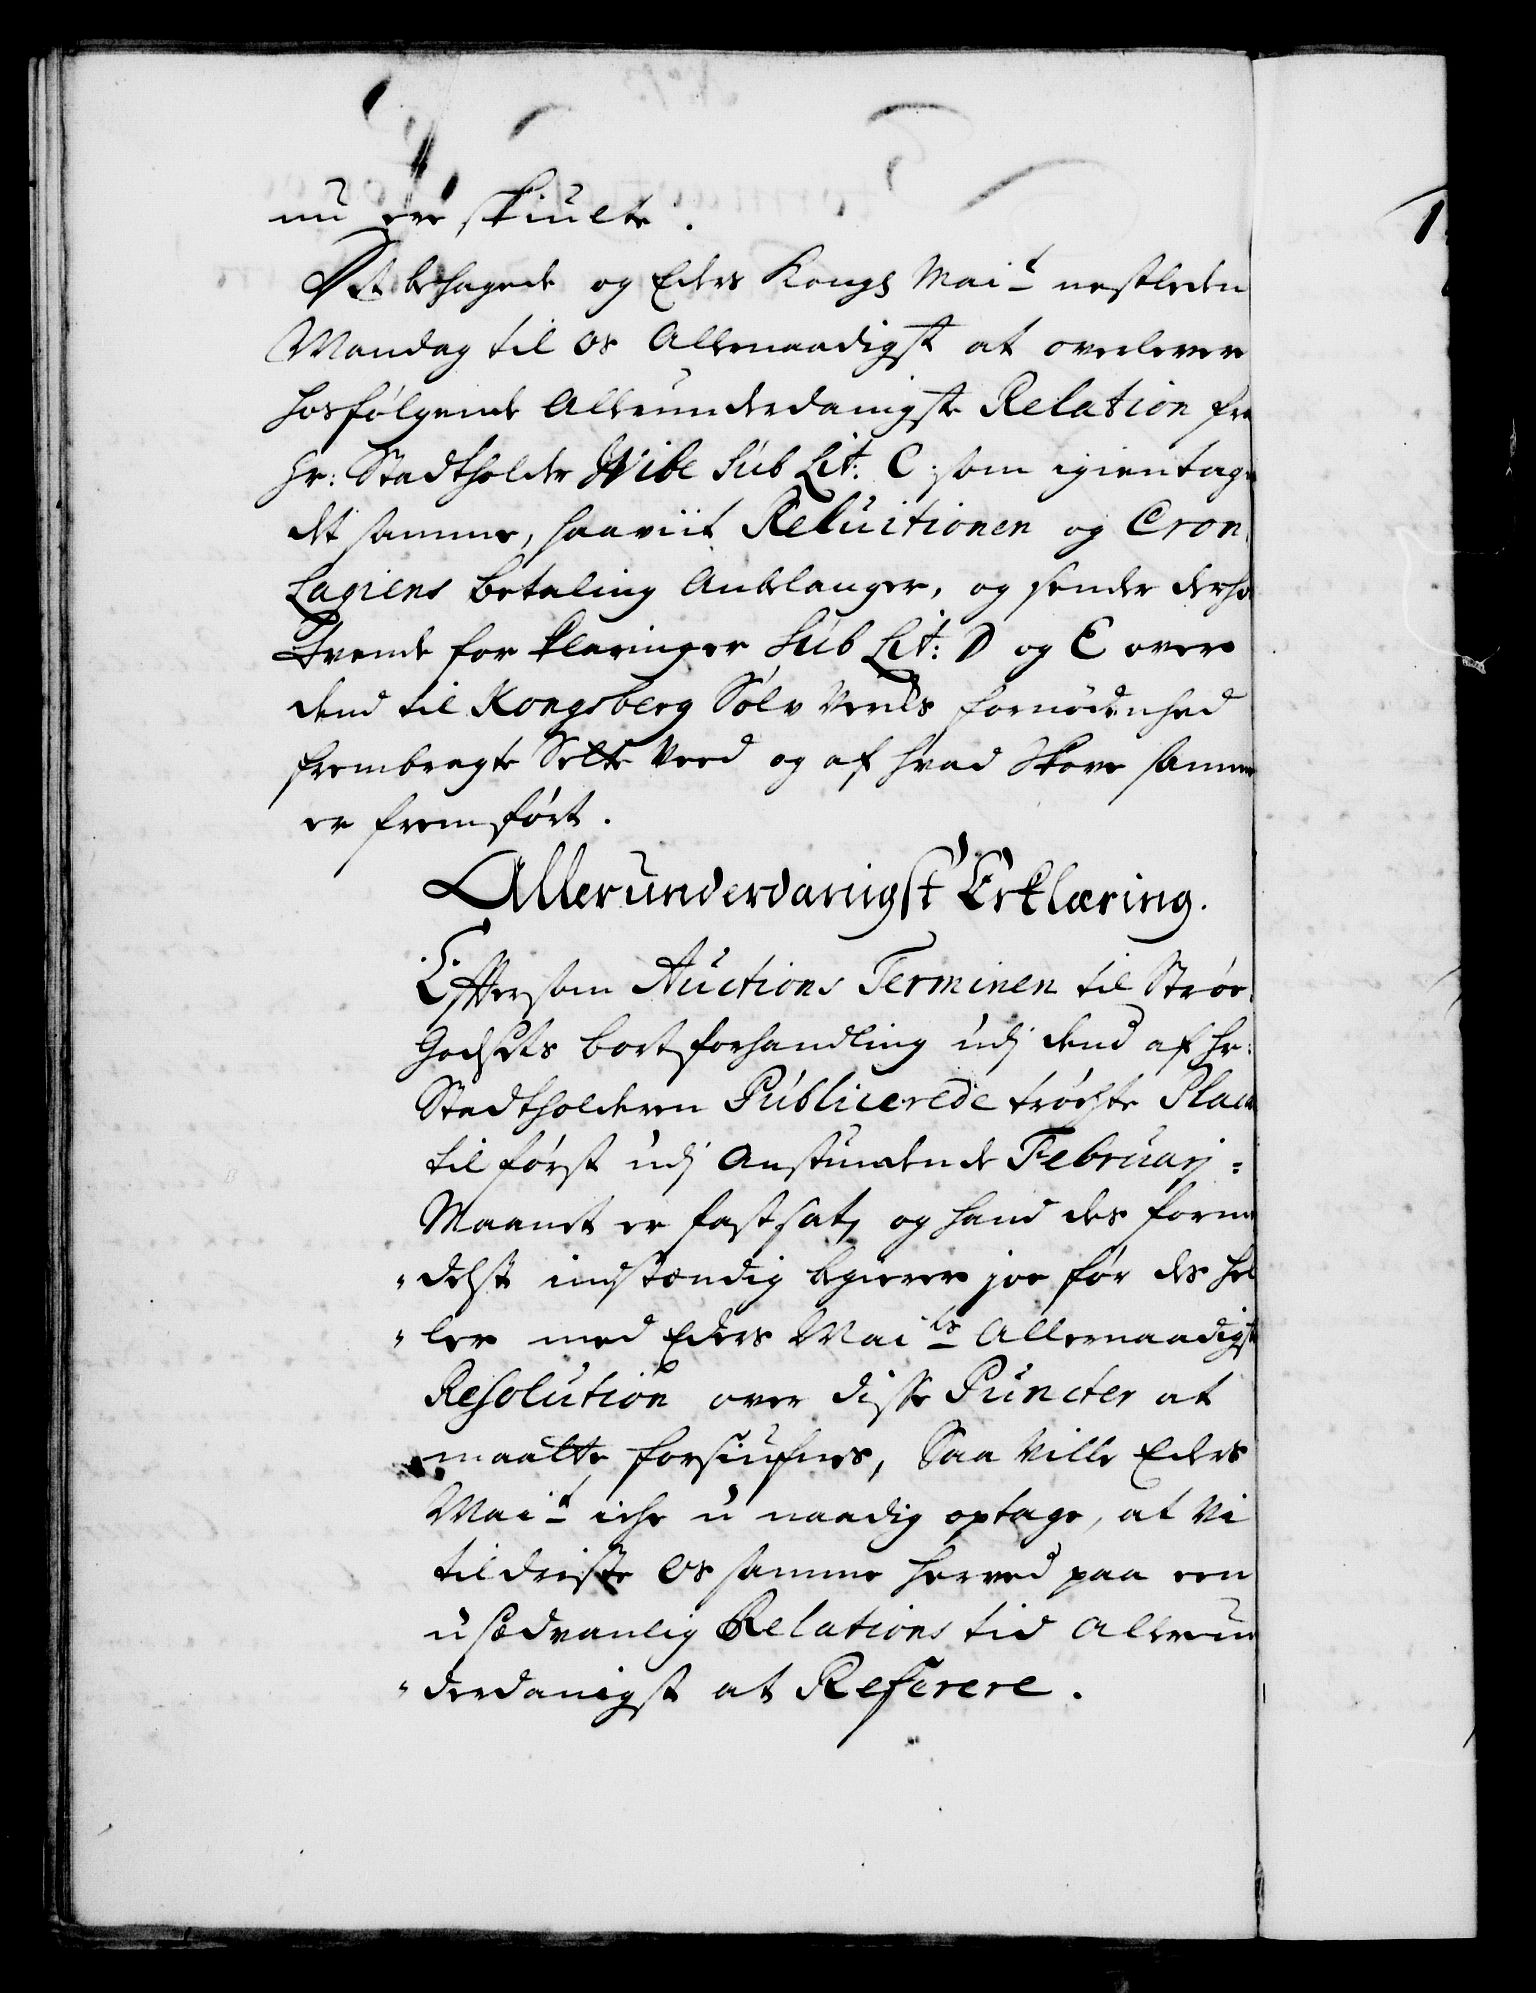 nu ere skiulte.
Det behagede og Eders Kongl Mait nestleden
Mandag til os Allernaadigst at overlevere
hosfølgende Allerunderdanigste Relation fra
Hr: Stadtholder Wibe Sub Lit: C. som igientager
det samme, saaviit Reluitionen og Cron
Lagiens betaling Anbelanger, og sender derhos
Tvende forklaringer Sub Lit: D og E over
dend til Kongsberg Sølv Vercks fornødenhed
frembragte Sette Veed og af hvad Skove samme
er fremført.
Allerunderdanigst Erklæring.
Effter som Auctions Terminen til Strøe
Godsets bortforhandling udj dend af Hr:
Stadtholderen Publicerede tröchte Placat
til først udj Anstundende Februarj =
Maanet er fastsat, og hand des forme
" delst indstændig begierer joe før des hel
" ler med Eders Maits Allernaadigste
Resolution over disse Puncter at
maatte forsiufnes, Saa Ville Eders
Mait iche u naadig optage, at Vi
til driste os samme herved paa een
usædvanlig Relations tid Allerun
" derdanigst at Referere.